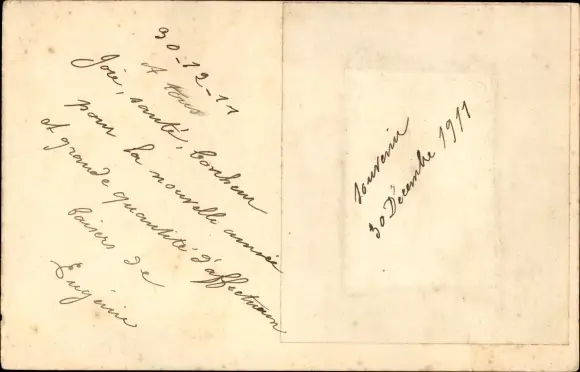 30-12-11
A tous
Joie, santé, bonheur
pour la nouvelle année
et grande quantité d'affectueux
baisers de
Eugénie
Souvenir
30 Décembre 1911